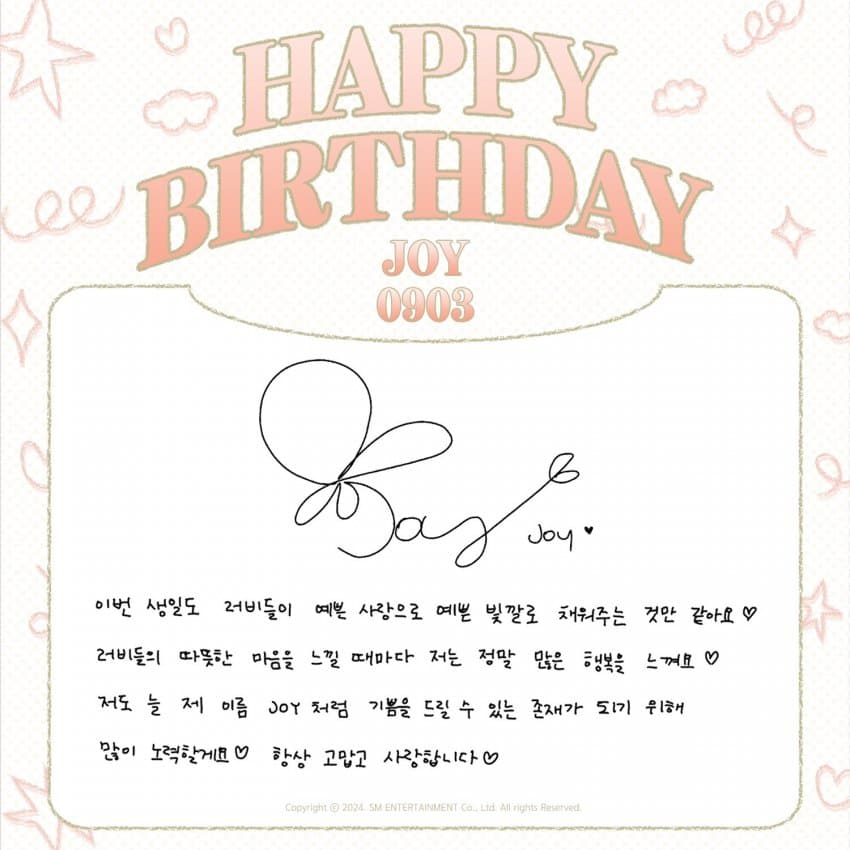 HAPPY
BIRTHDAY
JOY
0903
Joy
Joy ♥
이번 생일도 러비들이 예쁜 사랑으로 예쁜 빛깔로 채워주는 것만 같아요♡
러비들의 따뜻한 마음을 느낄 때마다 저는 정말 많은 행복을 느껴요♡
저도 늘 제 이름 JOY처럼 기쁨을 드릴 수 있는 존재가 되기 위해
많이 노력할게요♡ 항상 고맙고 사랑합니다♡
Copyright ⓒ 2024. SM ENTERTAINMENT Co., Ltd. All rights Reserved.